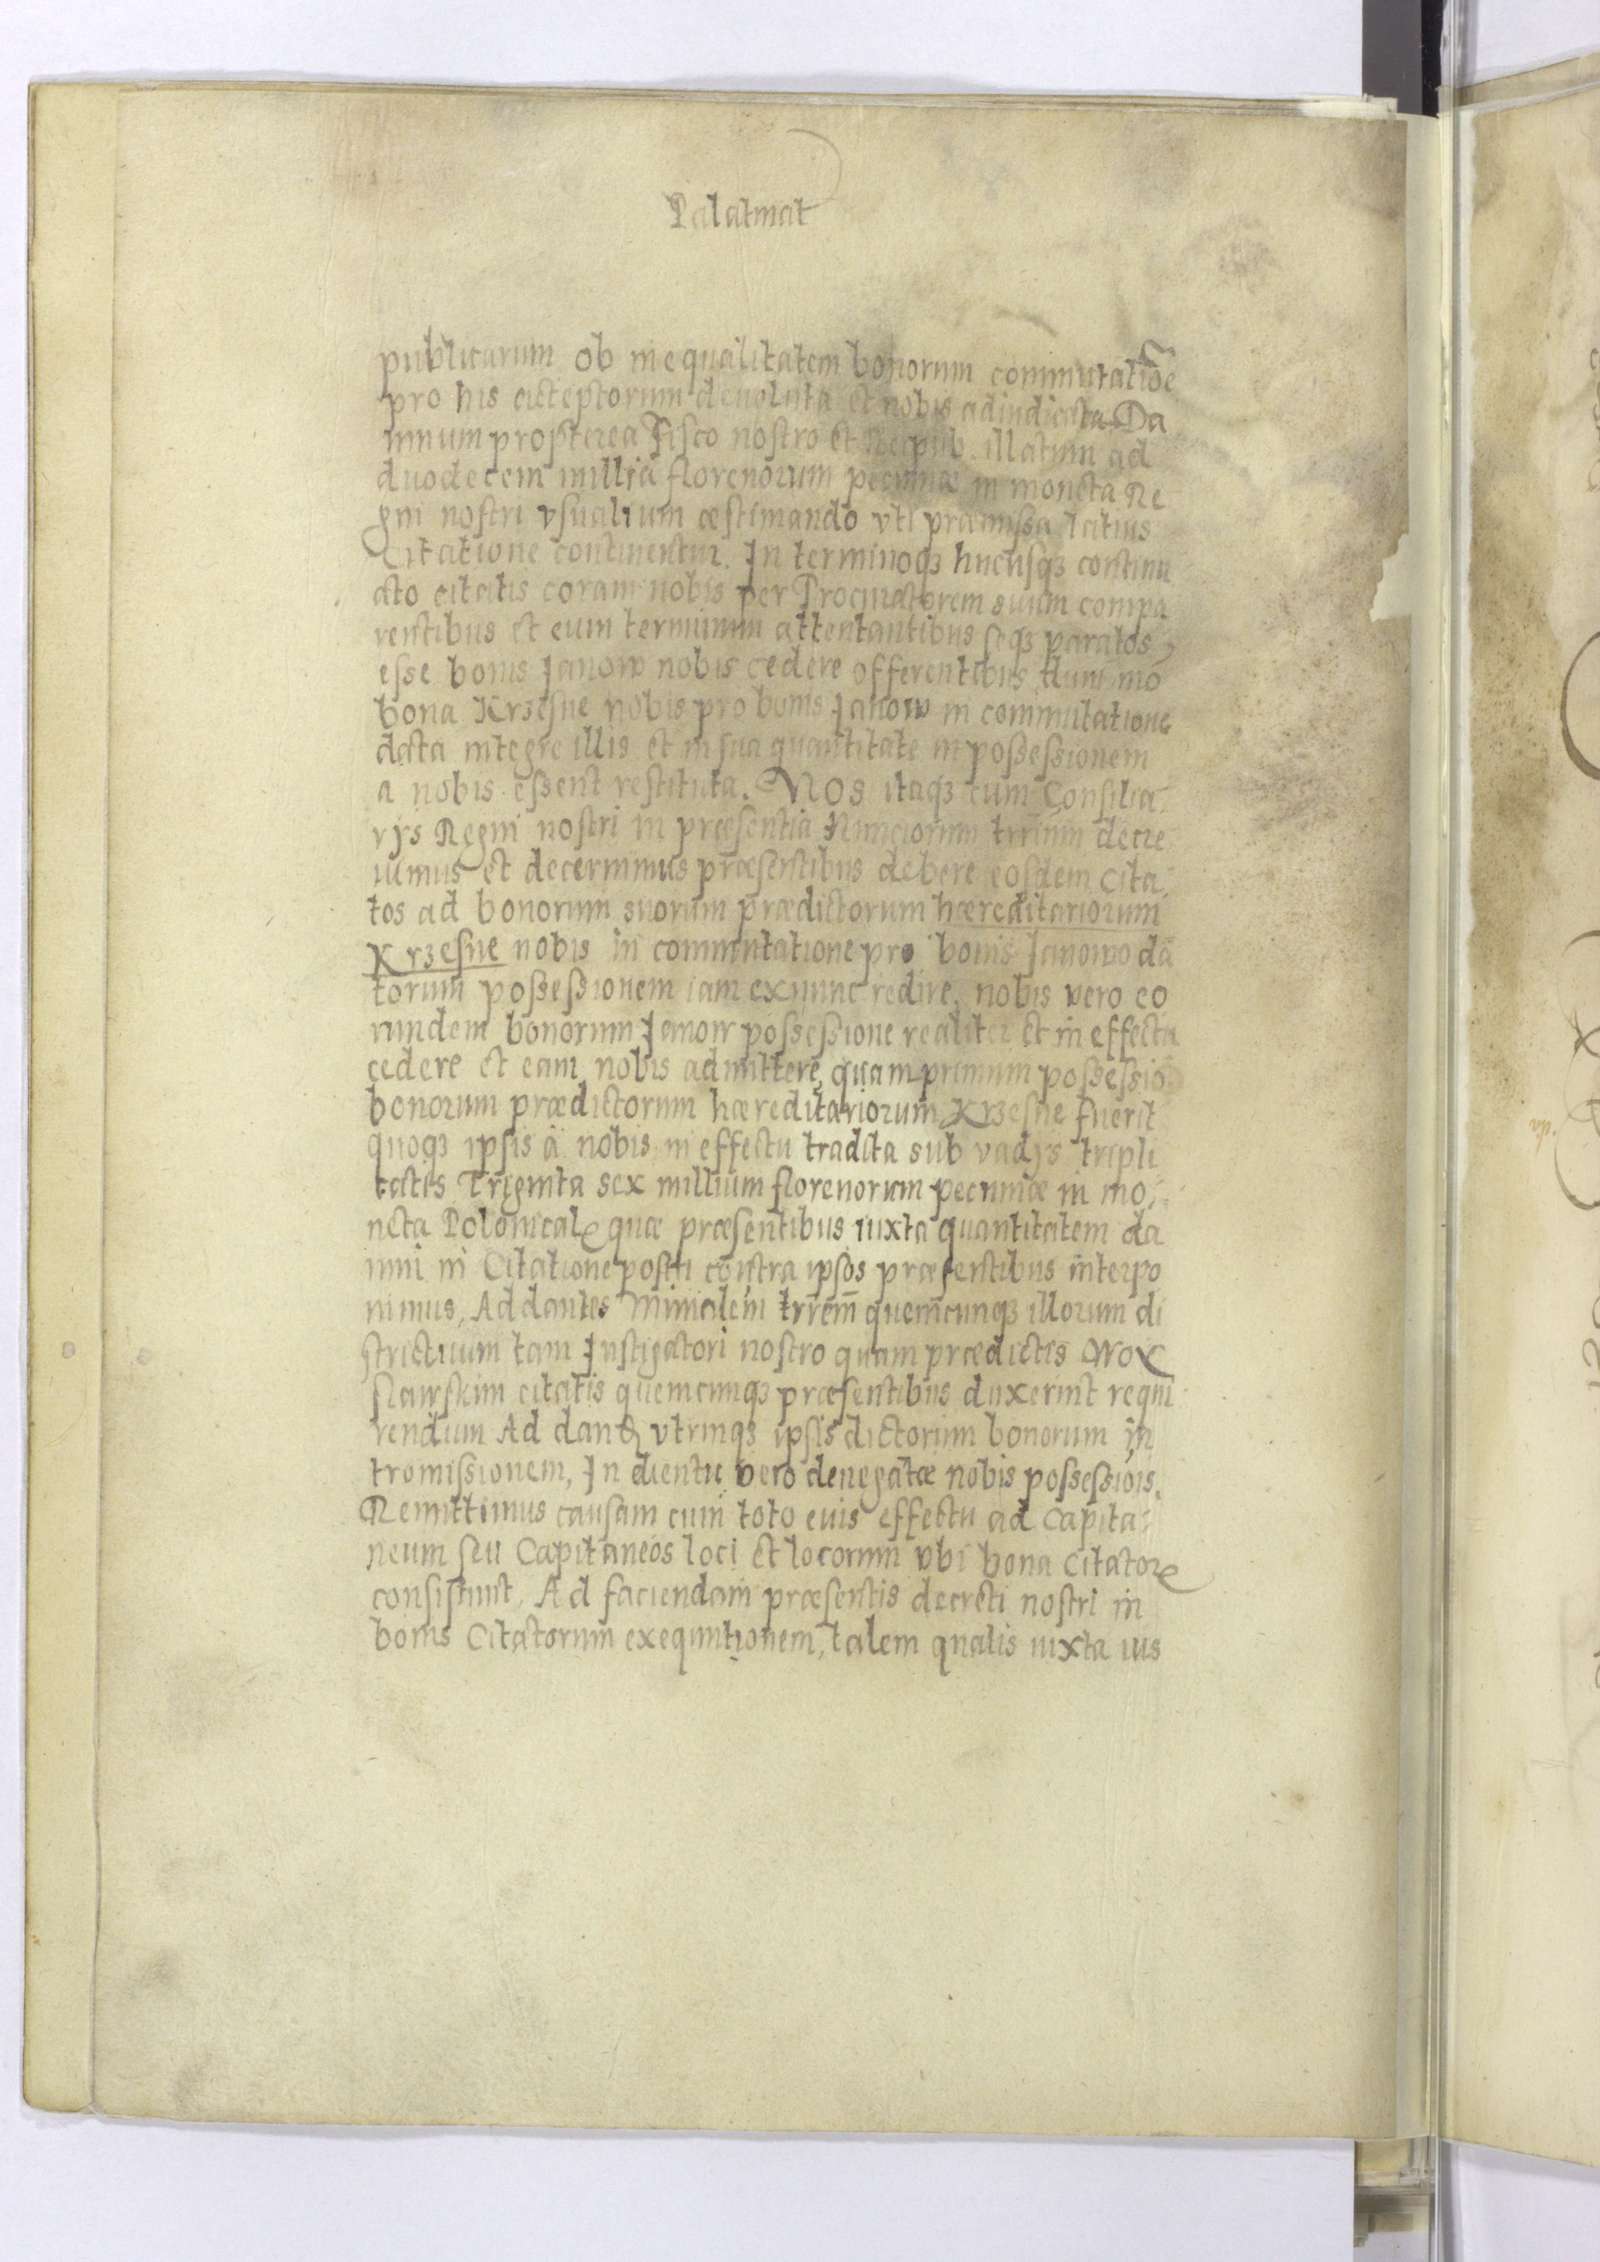 Palatinat
publicarum ob inequalitatem bonorum commutatiõe
pro his acceptorum deuoluta et nobis adiudicata Da
mnum propterea Fisco nostro et Reipub. illatum ad
duodecem millia florenorum pecuniæ in moneta Re
gni nostri vsualium æstimando vti præmissa latius
Citatione continentur. In terminoqꝫ hucusqꝫ continu
ato citatis coram nobis per Procuratorem suum compa
rentibus et eum terminum attentantibus seqꝫ paratos
esse bonis Janow nobis cedere offerentibus dum mo
bona Krzesne nobis pro bonis Janow in commutatione
data integre illis et in sua quantitate in possessionem
a nobis essent restituta. Nos itaqꝫ cum Consilia
rijs Regni nostri in præsentia Nunciorum trrñm decre
uimus et decernimus præsentibus debere eosdem Cita
tos ad bonorum suorum prædictorum hæreditariorum
Krzesne nobis in commutatione pro bonis Janowo da
torum possessionem iam ex nunc redire, nobis vero eo
rundem bonorum Janow possessione realiter et in effectu
cedere et eam nobis admittere, quam primum possessio
bonorum prædictorum hæreditariorum Krzesne fuerit
quoqꝫ ipsis à nobis in effectu tradita sub vadijs tripli
catis Triginta sex millium florenorum pecuniæ in mo
neta Polonical quæ præsentibus iuxta quantitatem da
mni in Citatione positi contra ipsos præsentibus interpo
nimus, Addantes Minĩalem trrem̃ quemcunqꝫ illorum di
strictuum tam Instigatori nostro quam prædictis Wox
slawskim citatis quemcunqꝫ præsentibus duxerint requi
rendum Ad dandꝭ vtrinqꝫ ipsis dictorum bonorum in
tromissionem, In dientu vero denegatæ nobis possessiõis.
Remittimus causam cum toto euis effectu ad Capita
neum seu Capitaneos loci et locorum vbi bona Citator
consistunt, Ad faciendam præsentis decreti nostri in
bonis Citatorum exequntionem, talem qualis iuxta ius